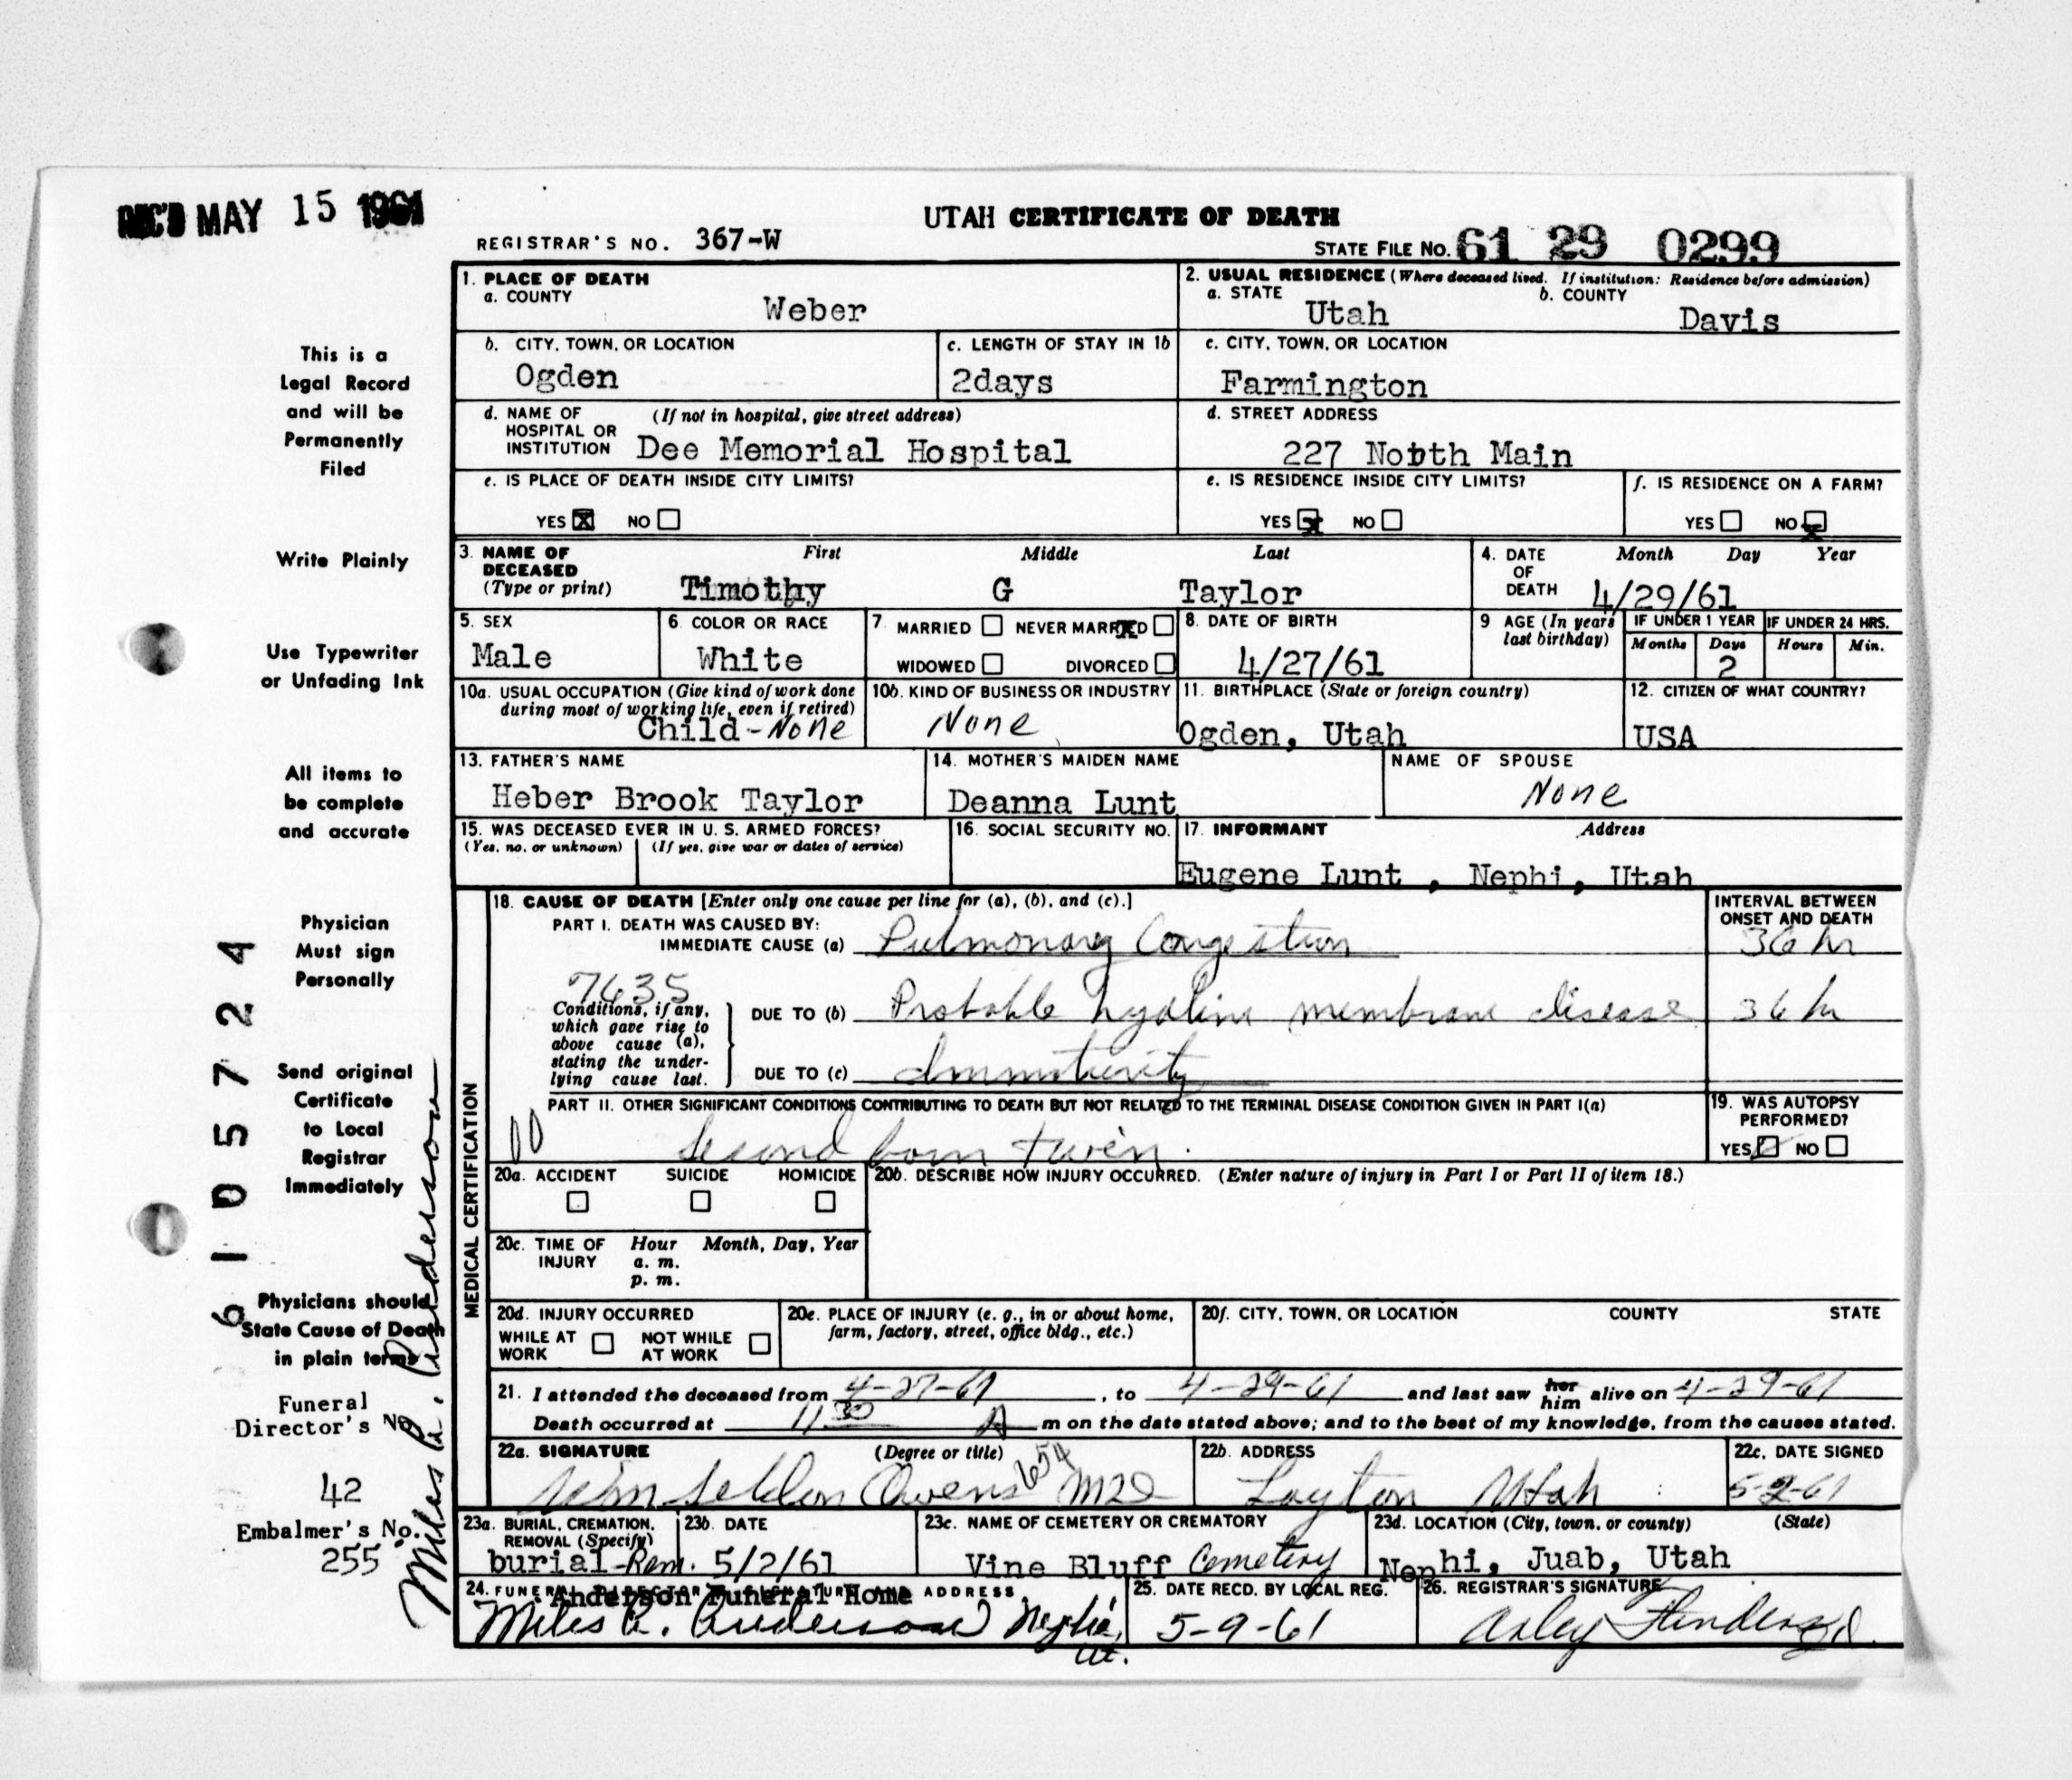 REC'D MAY 15 1961
UTAH CERTIFICATE OF DEATH
REGISTRAR'S NO. 367-W
STATE FILE NO. 61 29 0299
1. PLACE OF DEATH
a. COUNTY
Weber
2. USUAL RESIDENCE (Where deceased lived. If institution: Residence before admission)
a. STATE
Utah
b. COUNTY
Davis
b. CITY, TOWN, OR LOCATION
Ogden
c. LENGTH OF STAY IN 1b
2days
c. CITY, TOWN, OR LOCATION
Farmington
d. NAME OF HOSPITAL OR INSTITUTION (If not in hospital, give street address)
Dee Memorial Hospital
d. STREET ADDRESS
227 North Main
e. IS PLACE OF DEATH INSIDE CITY LIMITS?
YES X NO
e. IS RESIDENCE INSIDE CITY LIMITS?
YES x NO
f. IS RESIDENCE ON A FARM?
YES NO x
3. NAME OF DECEASED (Type or print)
First Middle Last
Timothy G Taylor
4. DATE OF DEATH Month Day Year
4/29/61
5. SEX
Male
6. COLOR OR RACE
White
7 MARRIED NEVER MARRIED X
WIDOWED DIVORCED
8. DATE OF BIRTH
4/27/61
9 AGE (In years last birthday)
IF UNDER 1 YEAR
Months Days
2
IF UNDER 24 HRS.
Hours Min.
10a. USUAL OCCUPATION (Give kind of work done during most of working life, even if retired)
Child-None
10b. KIND OF BUSINESS OR INDUSTRY
None
11. BIRTHPLACE (State or foreign country)
Ogden, Utah
12. CITIZEN OF WHAT COUNTRY?
USA
13. FATHER'S NAME
Heber Brook Taylor
14. MOTHER'S MAIDEN NAME
Deanna Lunt
NAME OF SPOUSE
None
15. WAS DECEASED EVER IN U. S. ARMED FORCES?
(Yes, no, or unknown) (If yes, give war or dates of service)
16. SOCIAL SECURITY NO.
17. INFORMANT Address
Eugene Lunt , Nephi, Utah
18. CAUSE OF DEATH [Enter only one cause per line for (a), (b), and (c).]
INTERVAL BETWEEN ONSET AND DEATH
PART I. DEATH WAS CAUSED BY:
IMMEDIATE CAUSE (a) Pulmonary Congestion 36 hr
7635
Conditions, if any, which gave rise to above cause (a), stating the underlying cause last.
DUE TO (b) Probable hyaline membrane disease 36 hr
DUE TO (c) Immaturity
PART II. OTHER SIGNIFICANT CONDITIONS CONTRIBUTING TO DEATH BUT NOT RELATED TO THE TERMINAL DISEASE CONDITION GIVEN IN PART I(a)
Second born twin.
19. WAS AUTOPSY PERFORMED?
YES NO
20a. ACCIDENT SUICIDE HOMICIDE
20b. DESCRIBE HOW INJURY OCCURRED. (Enter nature of injury in Part I or Part II of item 18.)
20c. TIME OF INJURY Hour Month, Day, Year
a. m.
p. m.
20d. INJURY OCCURRED
WHILE AT WORK NOT WHILE AT WORK
20e. PLACE OF INJURY (e. g., in or about home, farm, factory, street, office bldg., etc.)
20f. CITY, TOWN, OR LOCATION COUNTY STATE
21. I attended the deceased from 4-27-61, to 4-29-61 and last saw her him alive on 4-29-61
Death occurred at 11.30 A m on the date stated above; and to the best of my knowledge, from the causes stated.
22a. SIGNATURE (Degree or title)
John Seldon Owens 654 MD
22b. ADDRESS
Layton Utah
22c. DATE SIGNED
5-2-61
23a. BURIAL, CREMATION, REMOVAL (Specify)
burial-Rem.
23b. DATE
5/2/61
23c. NAME OF CEMETERY OR CREMATORY
Vine Bluff Cemetery
23d. LOCATION (City, town, or county) (State)
Nephi, Juab, Utah
24. FUNERAL DIRECTOR'S SIGNATURE AND ADDRESS
Anderson Funeral Home
Miles R. Anderson Nephi, Ut.
25. DATE RECD. BY LOCAL REG.
5-9-61
26. REGISTRAR'S SIGNATURE
MEDICAL CERTIFICATION
This is a
Legal Record
and will be
Permanently
Filed
Write Plainly
Use Typewriter
or Unfading Ink
All items to
be complete
and accurate
Physician
Must sign
Personally
Send original
Certificate
to Local
Registrar
Immediately
Physicians should
State Cause of Death
in plain terms
Funeral
Director's No
42
Embalmer's No.
255
6105724
Miles R. Anderson